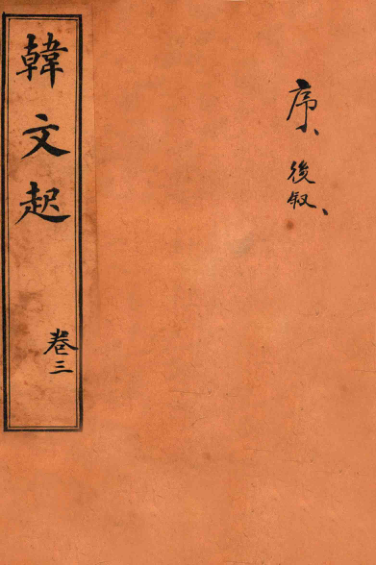 序、
後叙、
韓文起
卷三